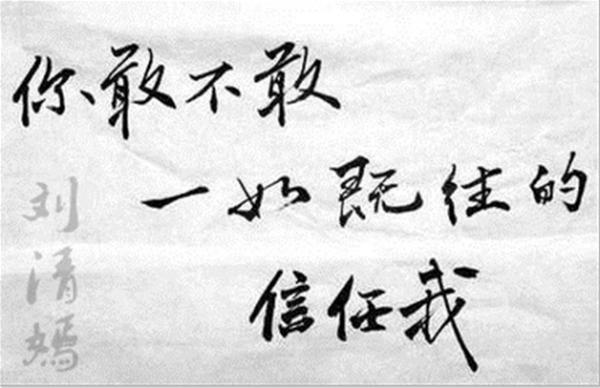 你敢不敢
一如既往的
信任我
刘清嫣